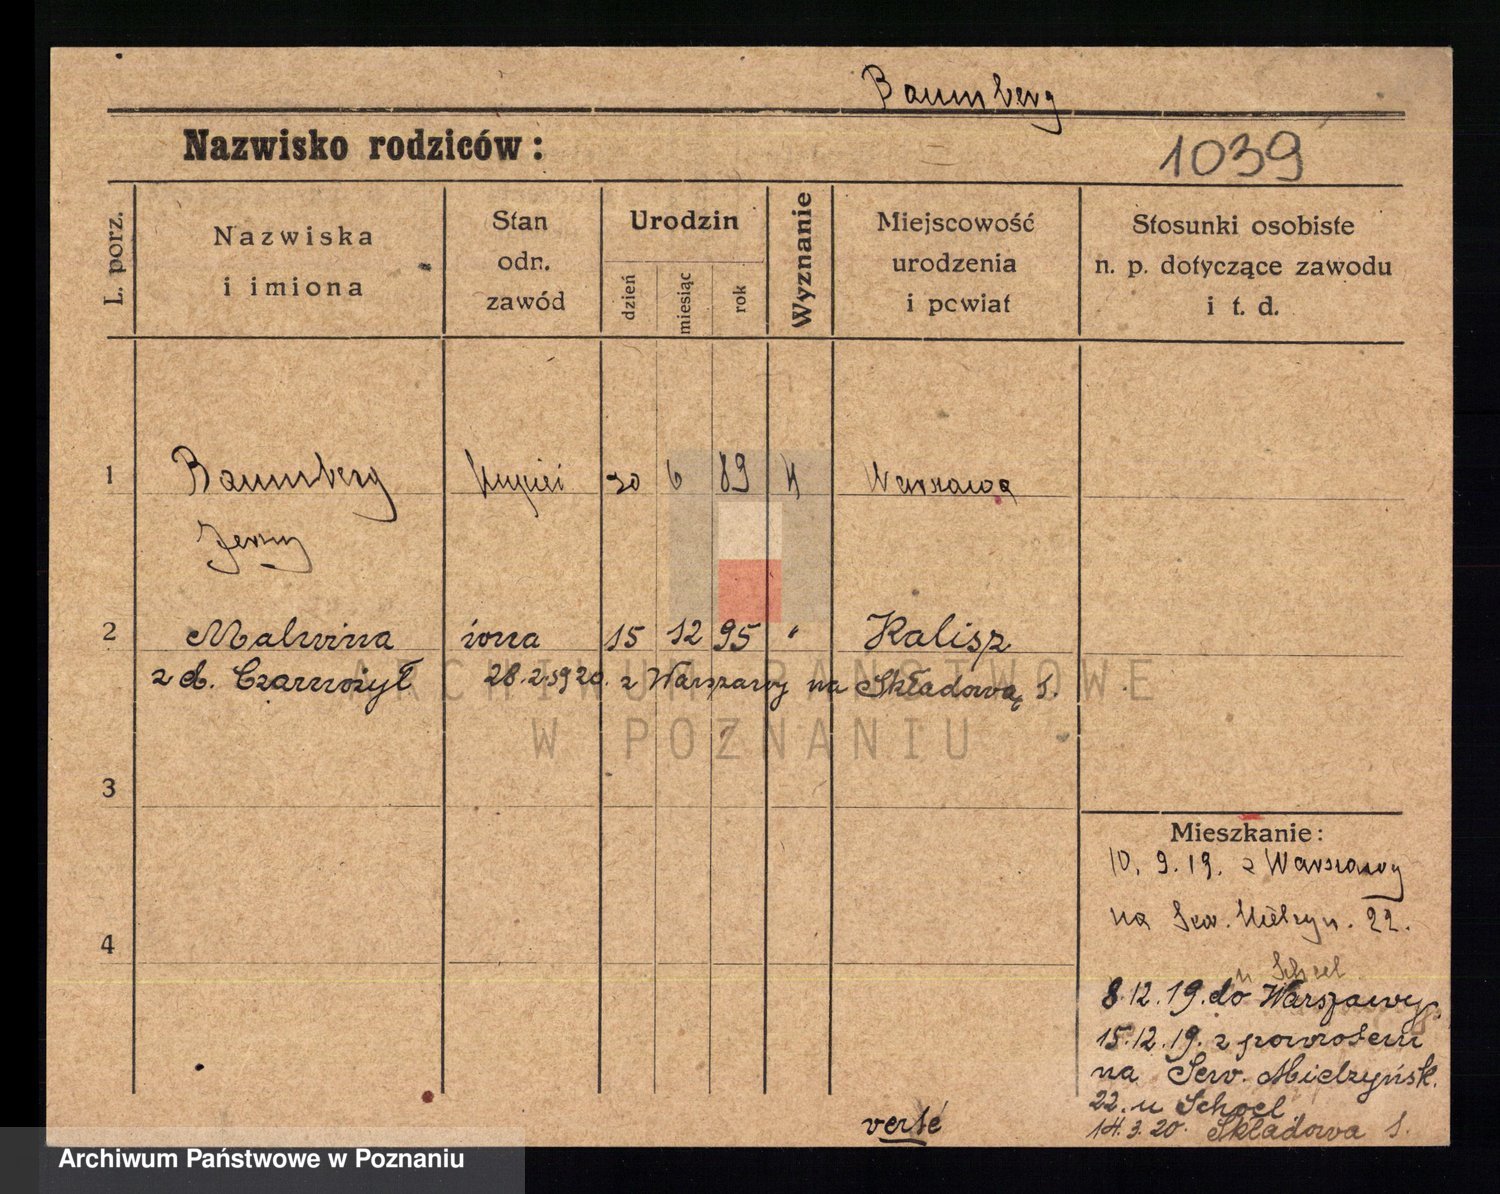 Baumberg
Nazwisko rodziców:
1039
L. porz.
Nazwiska
i imiona
Stan
odn.
zawód
Urodzin
dzień
miesiąc
rok
Wyznanie
Miejscowość
urodzenia
i pcwiat
Stosunki osobiste
n. p. dotyczące zawodu
i t. d.
1 Baumberg kupiec 20 6 89 Warszawa
Jerzy
2 Malwina żona 15 12 95 " Kalisz
z d. Czarnożył 28.2.1920. z Warszawy na Składową 1.
ARCHIWUM PAŃSTWOWE
W POZNANIU
3
4
Mieszkanie:
10. 9. 19. z Warszawy
na Sew. Mielżyn. 22.
u Schoel
8.12.19. do Warszawy.
15.12.19. z powrotem
na Sew. Mielżyńsk.
22. u Schoel
14.3.20. Składowa 1.
verte
Archiwum Państwowe w Poznaniu